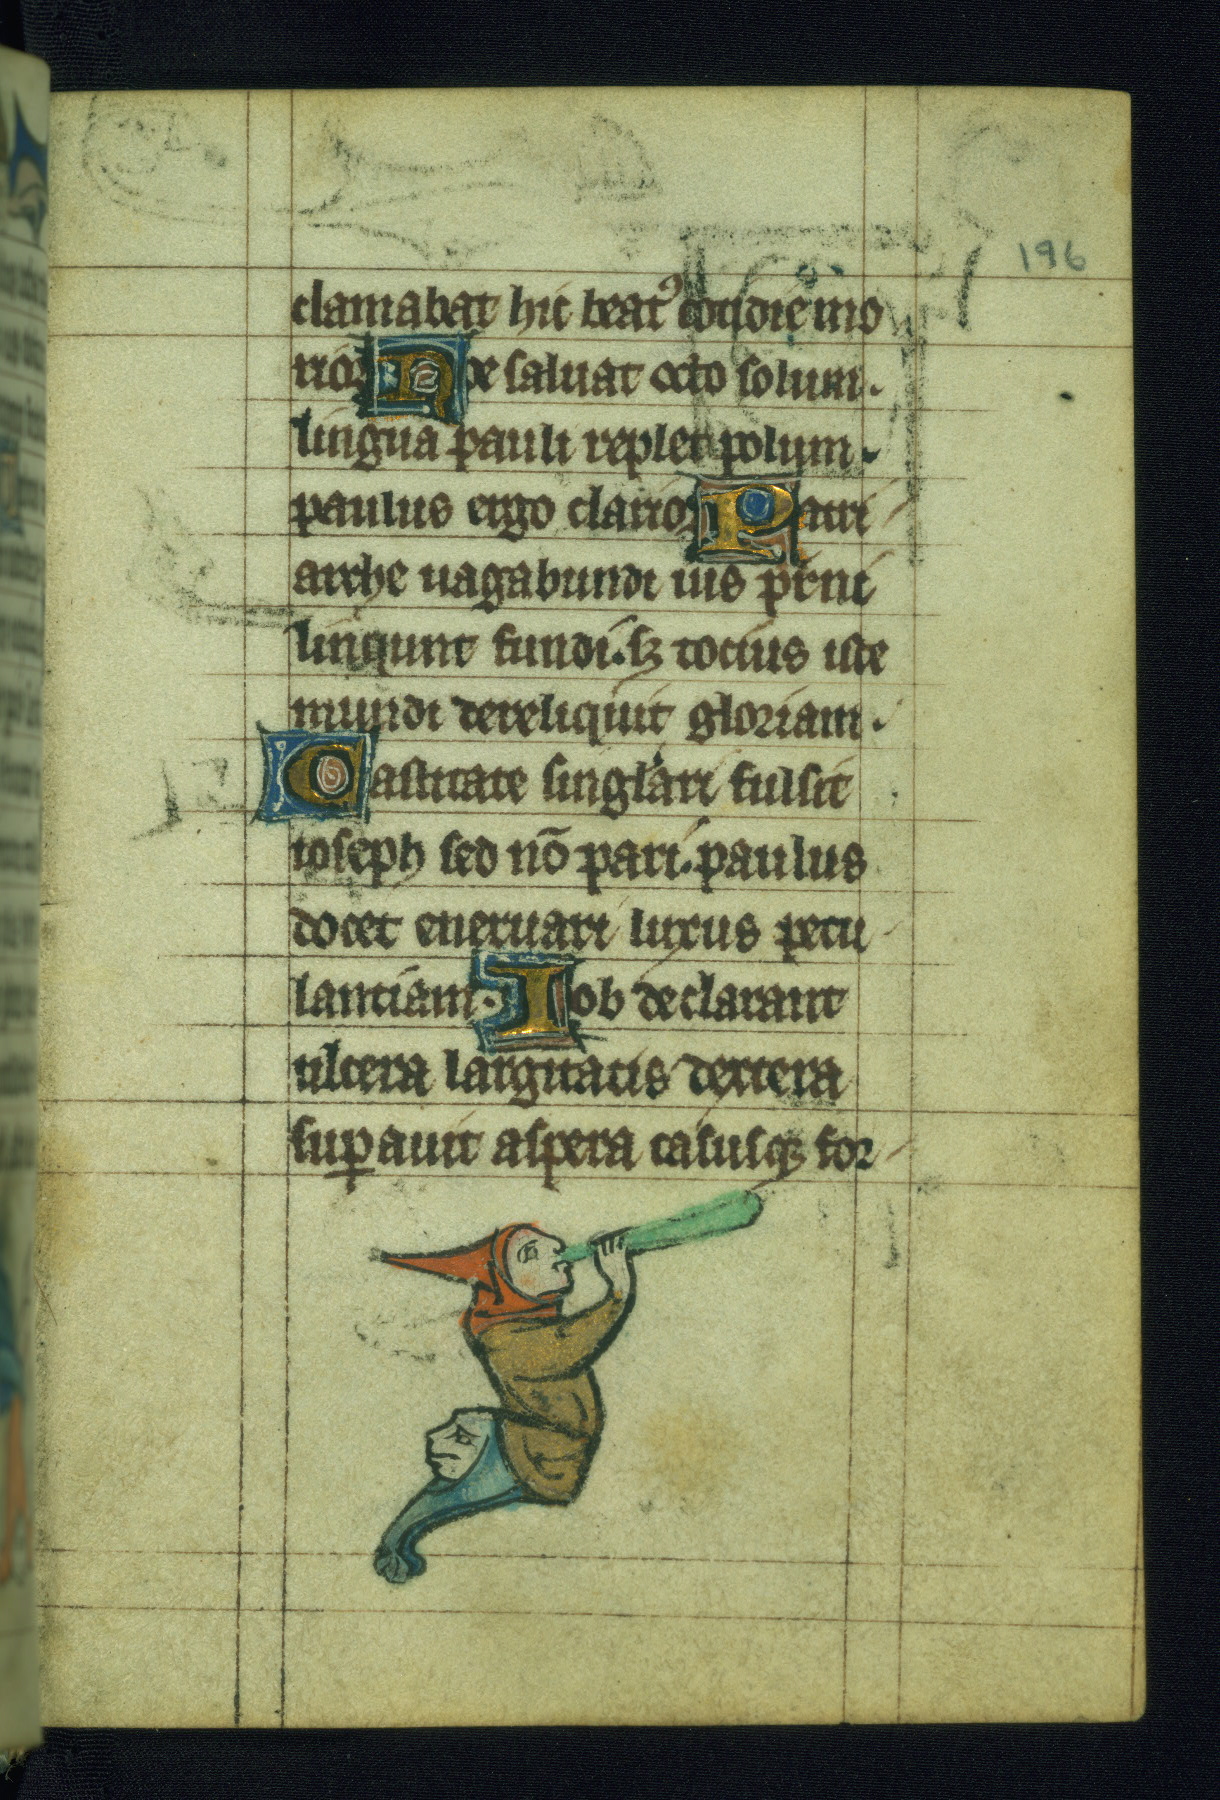 196
clamabat hic beatꝰ cotidie mo
rior Noe saluat octo solum.
lingua pauli replet polum.
paulus ergo clarior Patri
arche uagabundi ius p̄rni
linqunt fundi. sꝫ tocius iste
mundi dereliquit gloriam.
Castitate singlari fulsit
ioseph sed nō pari. paulus
docet eneruari luxus petu
lantiam. Iob declarant
ulcera largitatis dextera
suꝑauit aspera casusqꝫ for